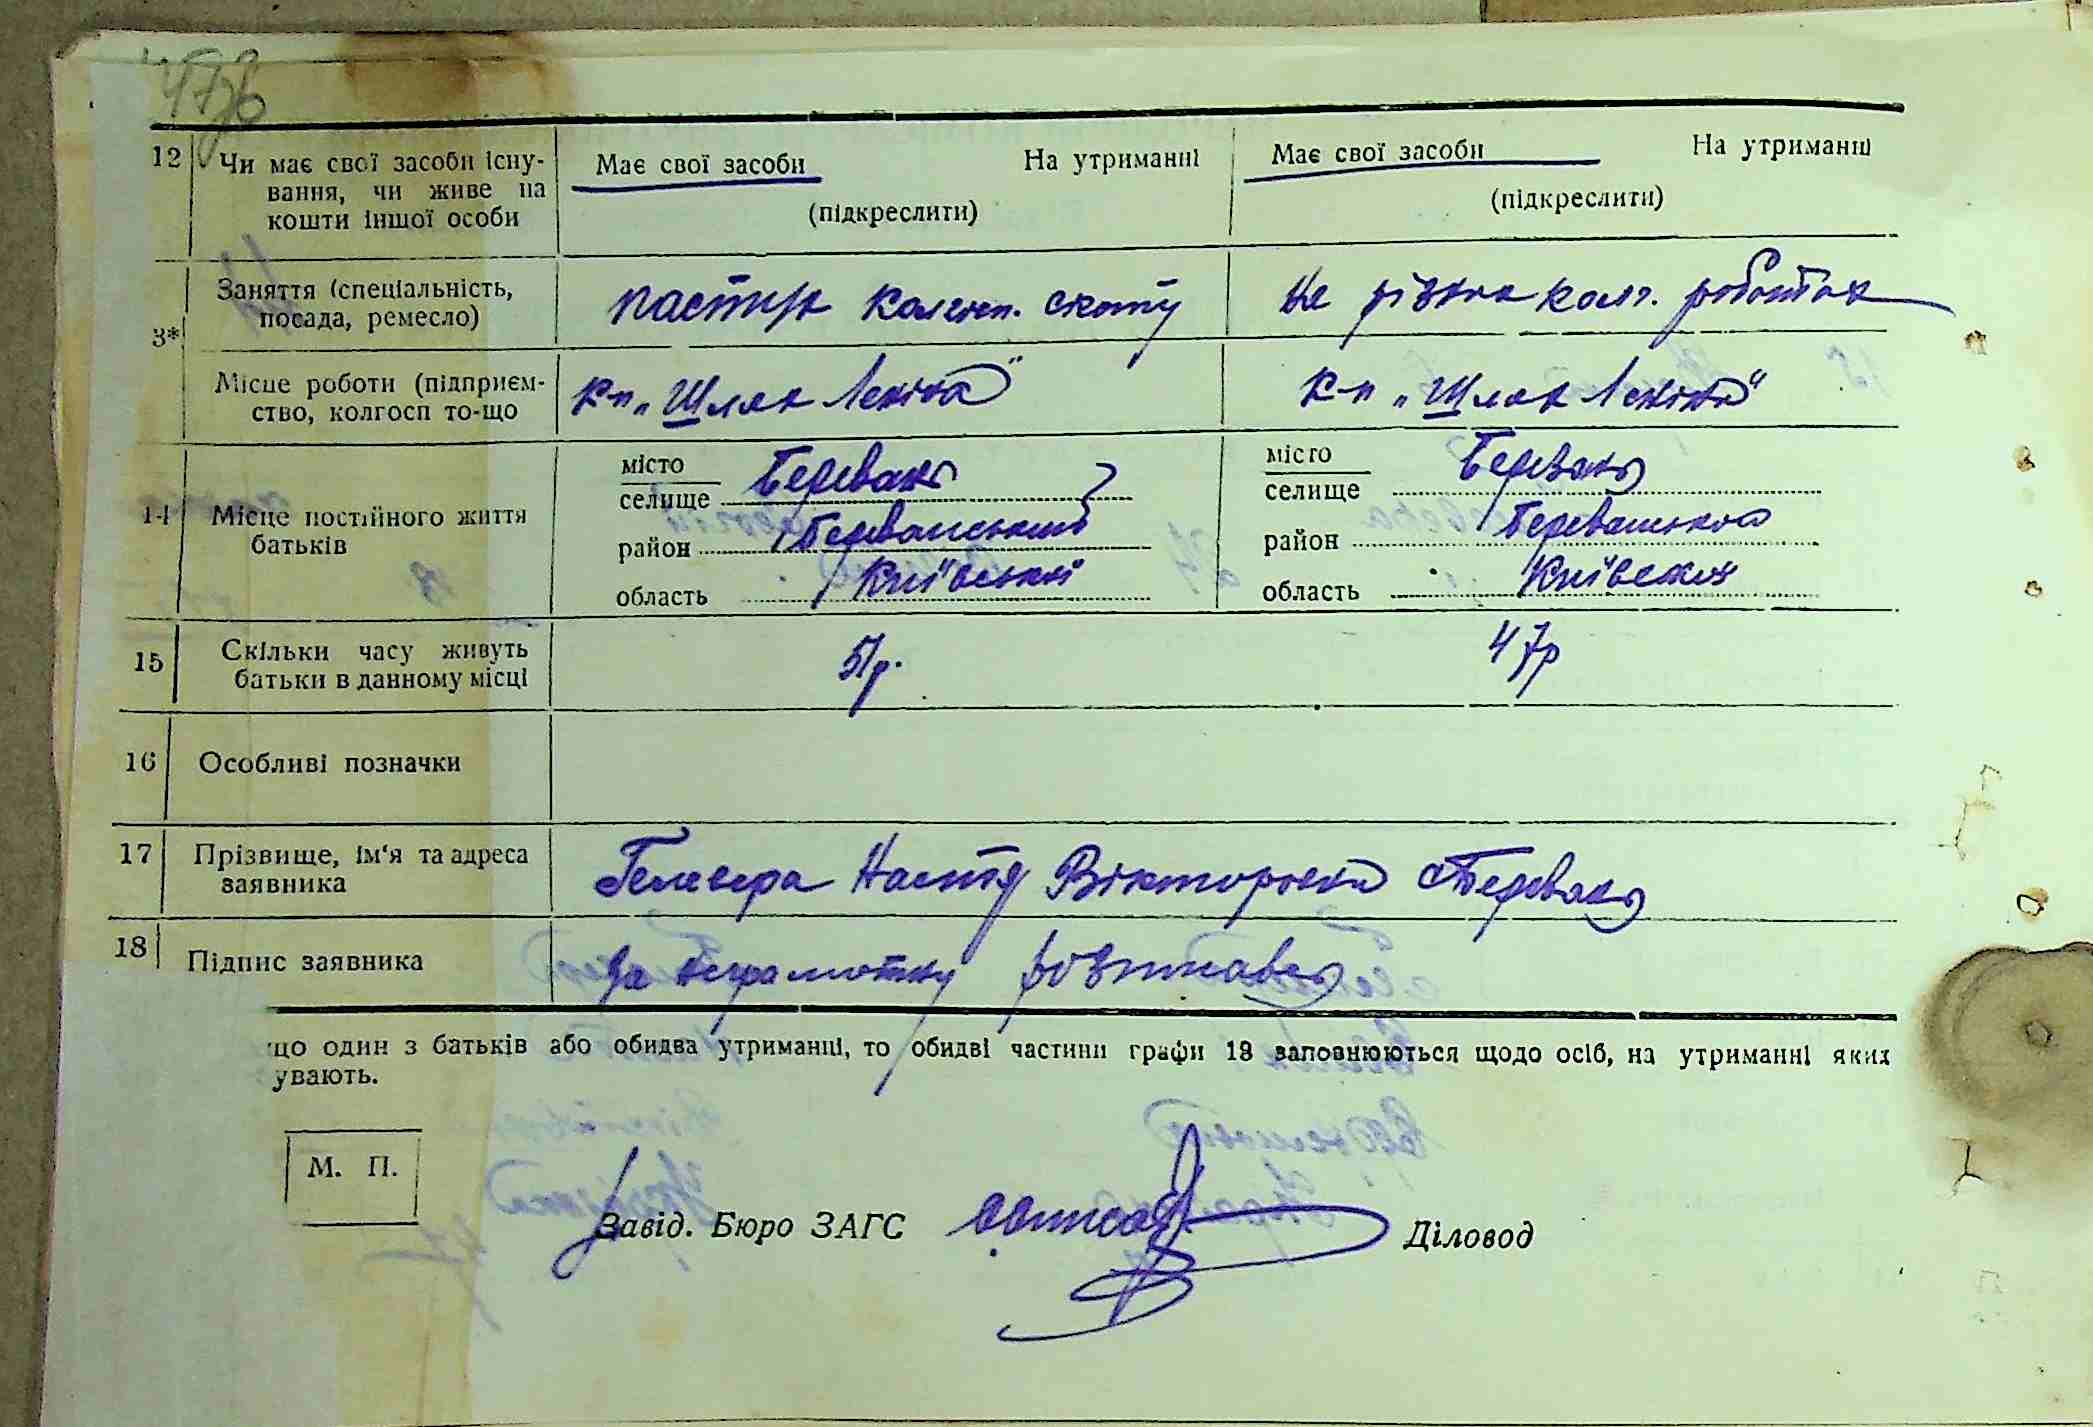 12 Чи має свої засоби існу-
вання, чи живе на
кошти іншої особи
Має свої засоби На утриманні
(підкреслити)
Має свої засоби На утриманні
(підкреслити)
3* Заняття (спеціальність,
посада, ремесло)
пастух колгосп. скоту
На різних колг. роботах
Місце роботи (підприєм-
ство, колгосп то-що
к-п „Шлях Леніна"
к-п „Шлях Леніна"
14 Місце постійного життя
батьків
місто
селище Березань
район Березанський
область Київської
місто
селище Березань
район Березанського
область Київської
15 Скільки часу живуть
батьки в данному місці
51р.
47р
16 Особливі позначки
17 Прізвище, ім'я та адреса
заявника
Гелевера Настя Вікторовна с Березань
18 Підпис заявника
За неграмотну
що один з батьків або обидва утриманні, то обидві частини графи 13 заповнюються щодо осіб, на утриманні яких
увають.
М. П.
Завід. Бюро ЗАГС
Діловод